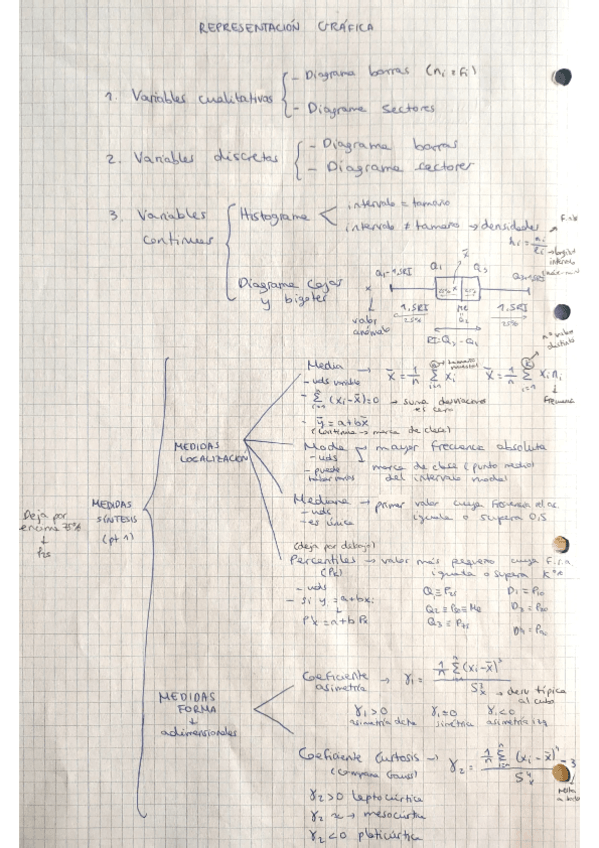 REPRESENTACIÓN GRÁFICA
1. Variables cualitativas
- Diagrama barras (ni o fi)
- Diagrama sectores
2. Variables discretas
- Diagrama barras
- Diagrama sectores
3. Variables continuas
Histograma
intervalo = tamaño
intervalo ≠ tamaño → densidades
Diagrama cajas y bigotes
Q1-1,5RI
Q1
x̄
Q3
valor anómalo
1,5RI
25%
Me
Q2
1,5RI
25%
RI=Q3-Q1
MEDIDAS SÍNTESIS
(pt 1)
Deja por encima 75%
↓
P25
MEDIDAS LOCALIZACION
Media → x̄ = 1/n Σ xi
x̄ = 1/n Σ xi ni
Frecuencia
- uds variable
- Σ (xi-x̄)=0 → suma desviaciones es cero
- ȳ = a+bx̄
(continua → marca de clase)
Moda → mayor frecuencia absoluta
- uds
- puede haber varias
marca de clase (punto medio) del intervalo modal
Mediana → primer valor cuya frecuencia
iguala o supera 0,5
- uds
- es única
(deja por debajo)
Percentiles → valor más pequeño cuya f.r.a
(Pk)
iguala o supera
- uds
- si yi = a+bxi
↓
Pk = a+b Pk
Q1=P25
Q2=P50=Me
Q3=P75
D1=P10
MEDIDAS FORMA
↓
adimensionales
Coeficiente asimetría → γ1 = 1/n Σ(xi-x̄)³ / S³x → desv típica al cubo
γ1>0 asimetría dcta
γ1=0 simétrica
γ1<0 asimetría izq
Coeficiente Curtosis → γ2 = 1/n Σ (xi-x̄)⁴ / S⁴x - 3
(compara Gauss)
γ2>0 leptocúrtica
γ2 ≈ → mesocúrtica
γ2<0 platicúrtica